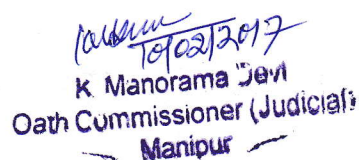 10/02/2017
K. Manorama Devi
Oath Commissioner (Judicial)
Manipur